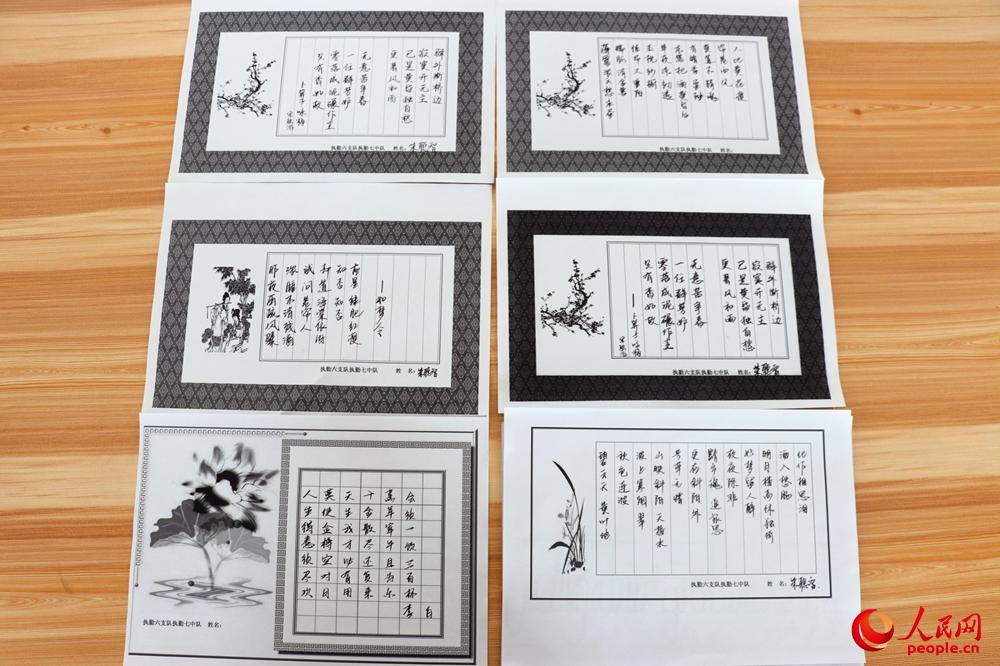 驿外断桥边
寂寞开无主
已是黄昏独自愁
更著风和雨
无意苦争春
一任群芳妒
零落成泥碾作尘
只有香如故
—卜算子·咏梅
宋 陆游
执勤六支队执勤七中队 姓名:
薄雾浓云愁永昼
瑞脑消金兽
佳节又重阳
玉枕纱厨
半夜凉初透
东篱把酒黄昏后
有暗香盈袖
莫道不销魂
帘卷西风
人比黄花瘦
执勤六支队执勤七中队 姓名:
昨夜雨疏风骤
浓睡不消残酒
试问卷帘人
却道海棠依旧
知否知否
应是绿肥红瘦
—如梦令
执勤六支队执勤七中队 姓名:
驿外断桥边
寂寞开无主
已是黄昏独自愁
更著风和雨
无意苦争春
一任群芳妒
零落成泥碾作尘
只有香如故
—卜算子·咏梅
宋 陆游
执勤六支队执勤七中队 姓名:
人生得意须尽欢
莫使金樽空对月
天生我才必有用
千金散尽还复来
烹羊宰牛且为乐
会须一饮三百杯
李白
执勤六支队执勤七中队 姓名:
碧云天 黄叶地
秋色连波
波上寒烟翠
山映斜阳天接水
芳草无情
更在斜阳外
黯乡魂 追旅思
夜夜除非
好梦留人睡
明月楼高休独倚
酒入愁肠
化作相思泪
执勤六支队执勤七中队 姓名:
人民网
people.cn